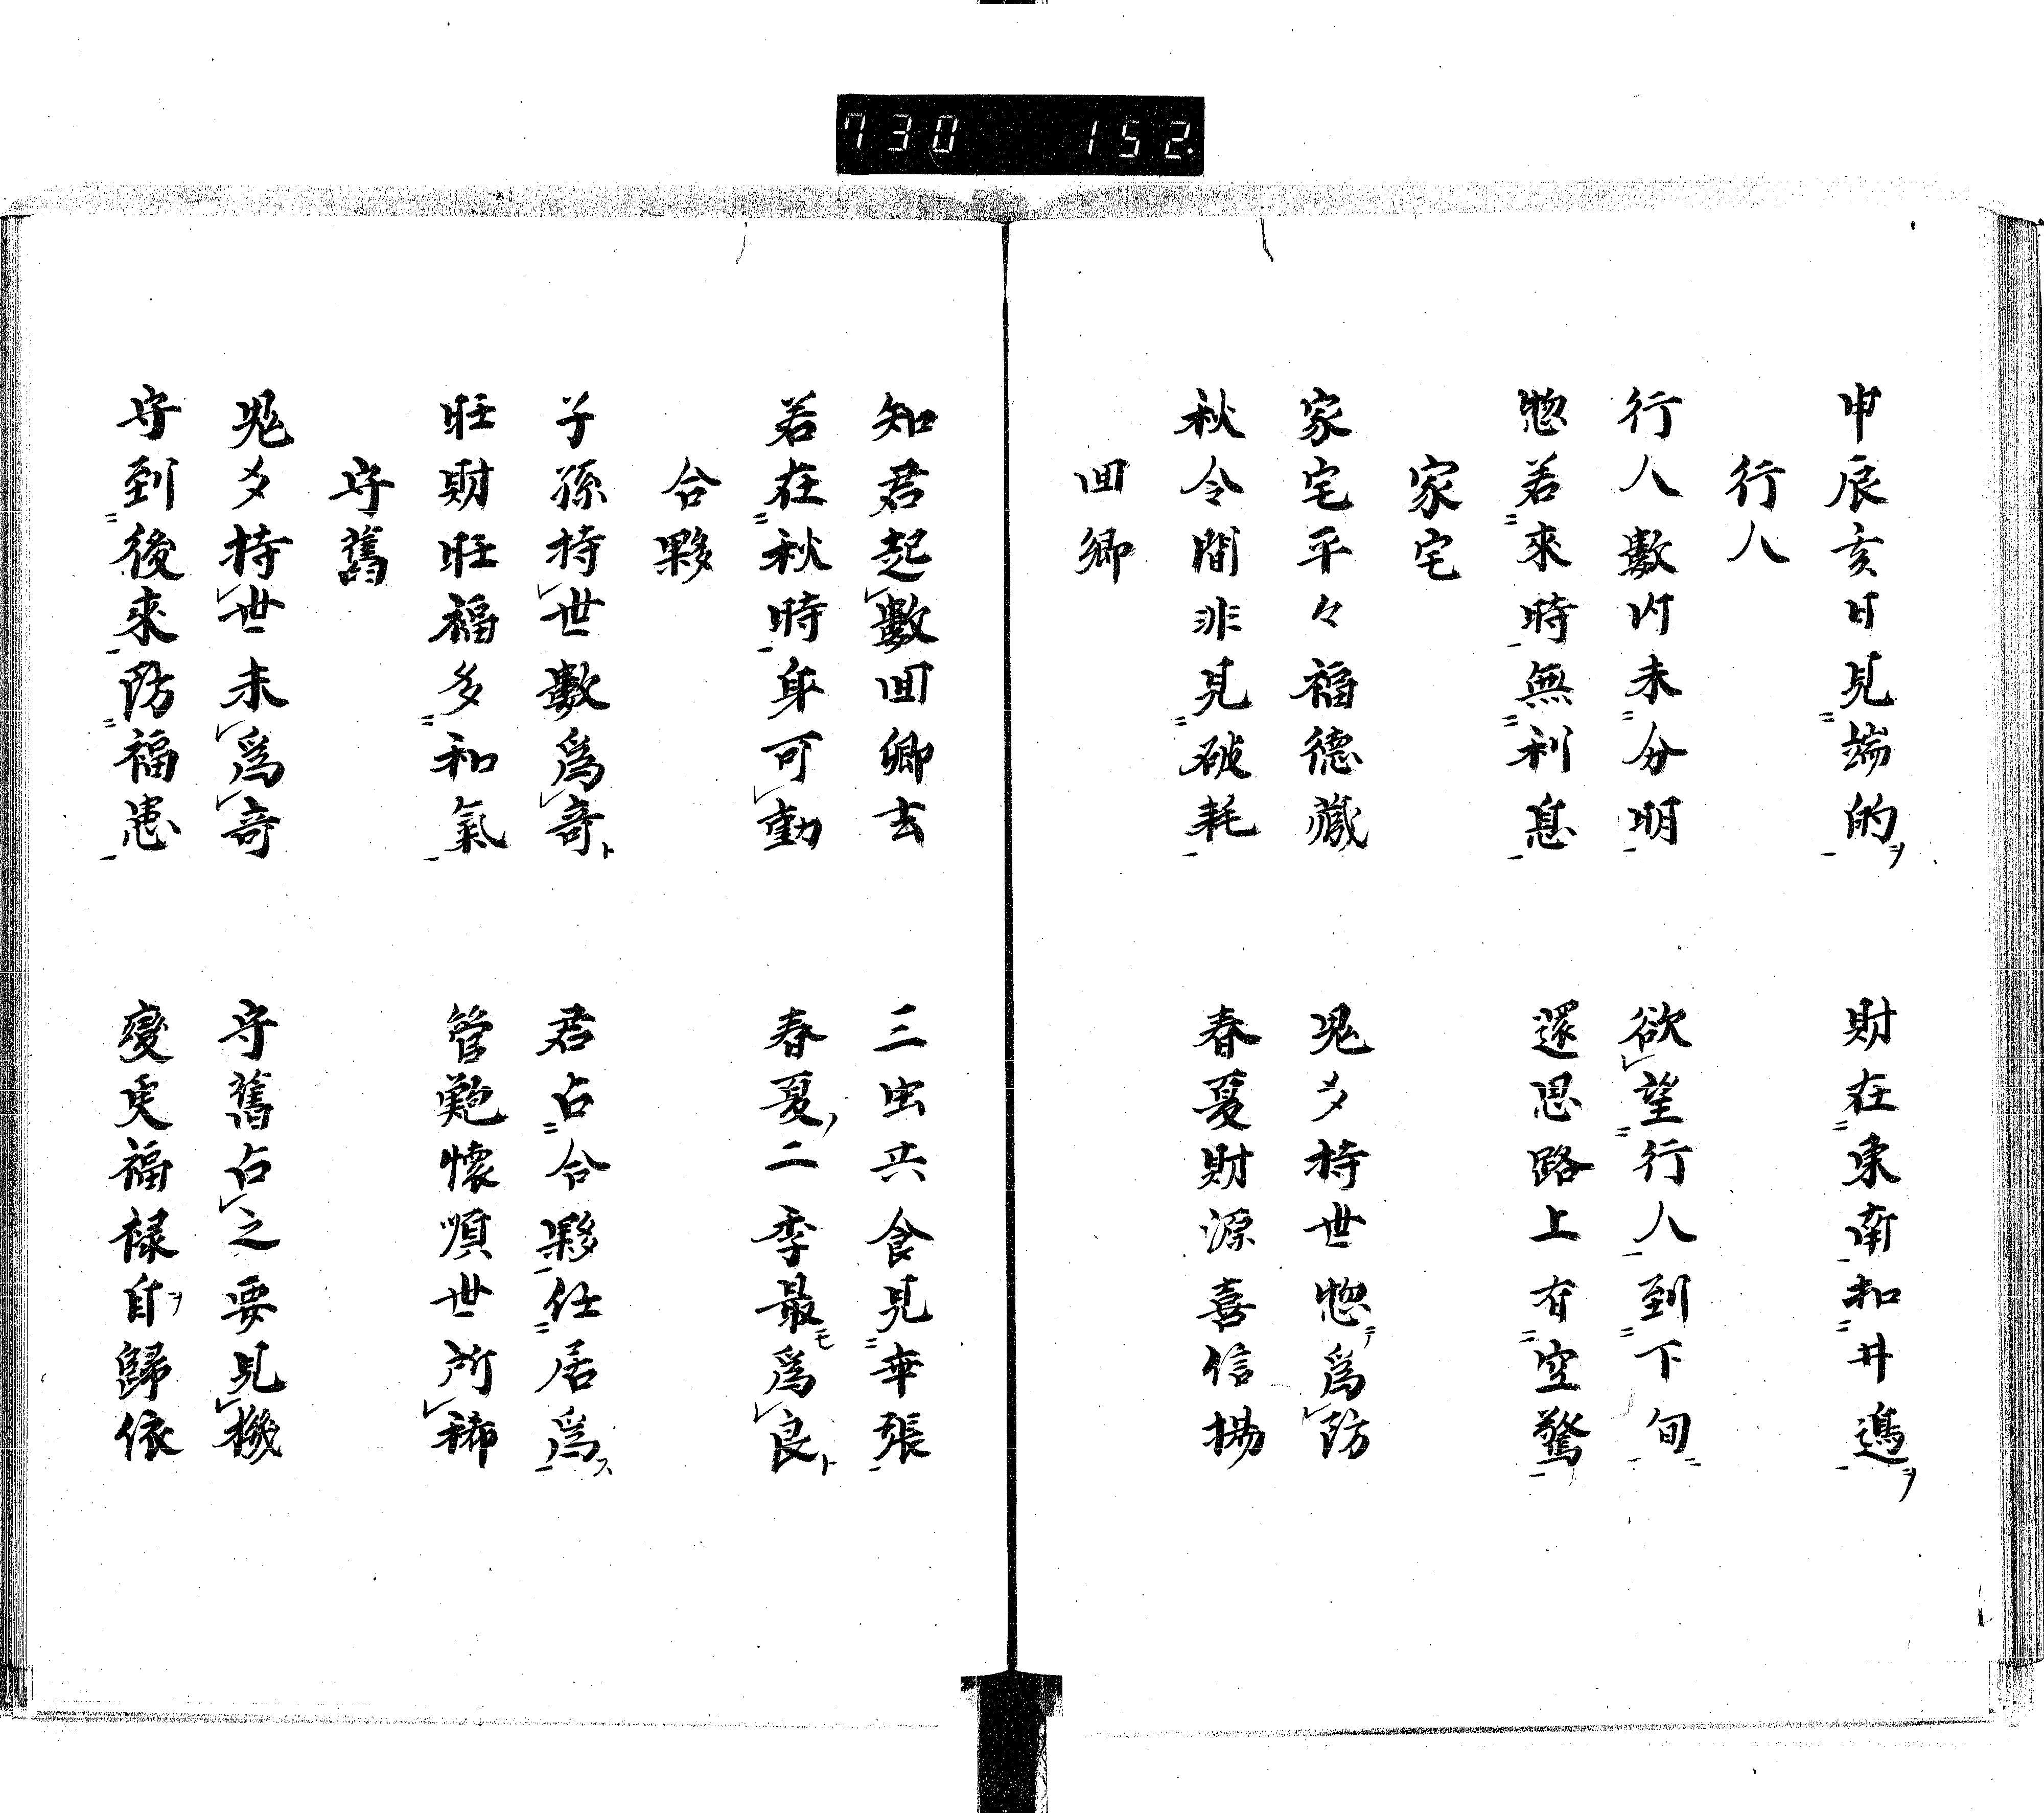 730 152
申辰亥日見端的ヲ 財在東南和井邊ヲ
行人
行人數占未分明 欲望行人到下旬
惣若來時無利息 還思路上有空驚
家宅
家宅平々福德藏 鬼爻持世惣テ爲防
秋令間非見破耗 春夏財源喜信揚
回鄉
知君起數回鄉去 三虫共食見幸張
若在秋時身可動 春夏ノ二季最モ爲良ト
合夥
子孫持世數爲奇ト 君占合夥任居爲ス
旺財旺福多和氣 管勉懷順世所稀
守舊
鬼爻持世未爲奇 守舊占之要見機
守到後來防福患 變更福祿自ヲ歸依